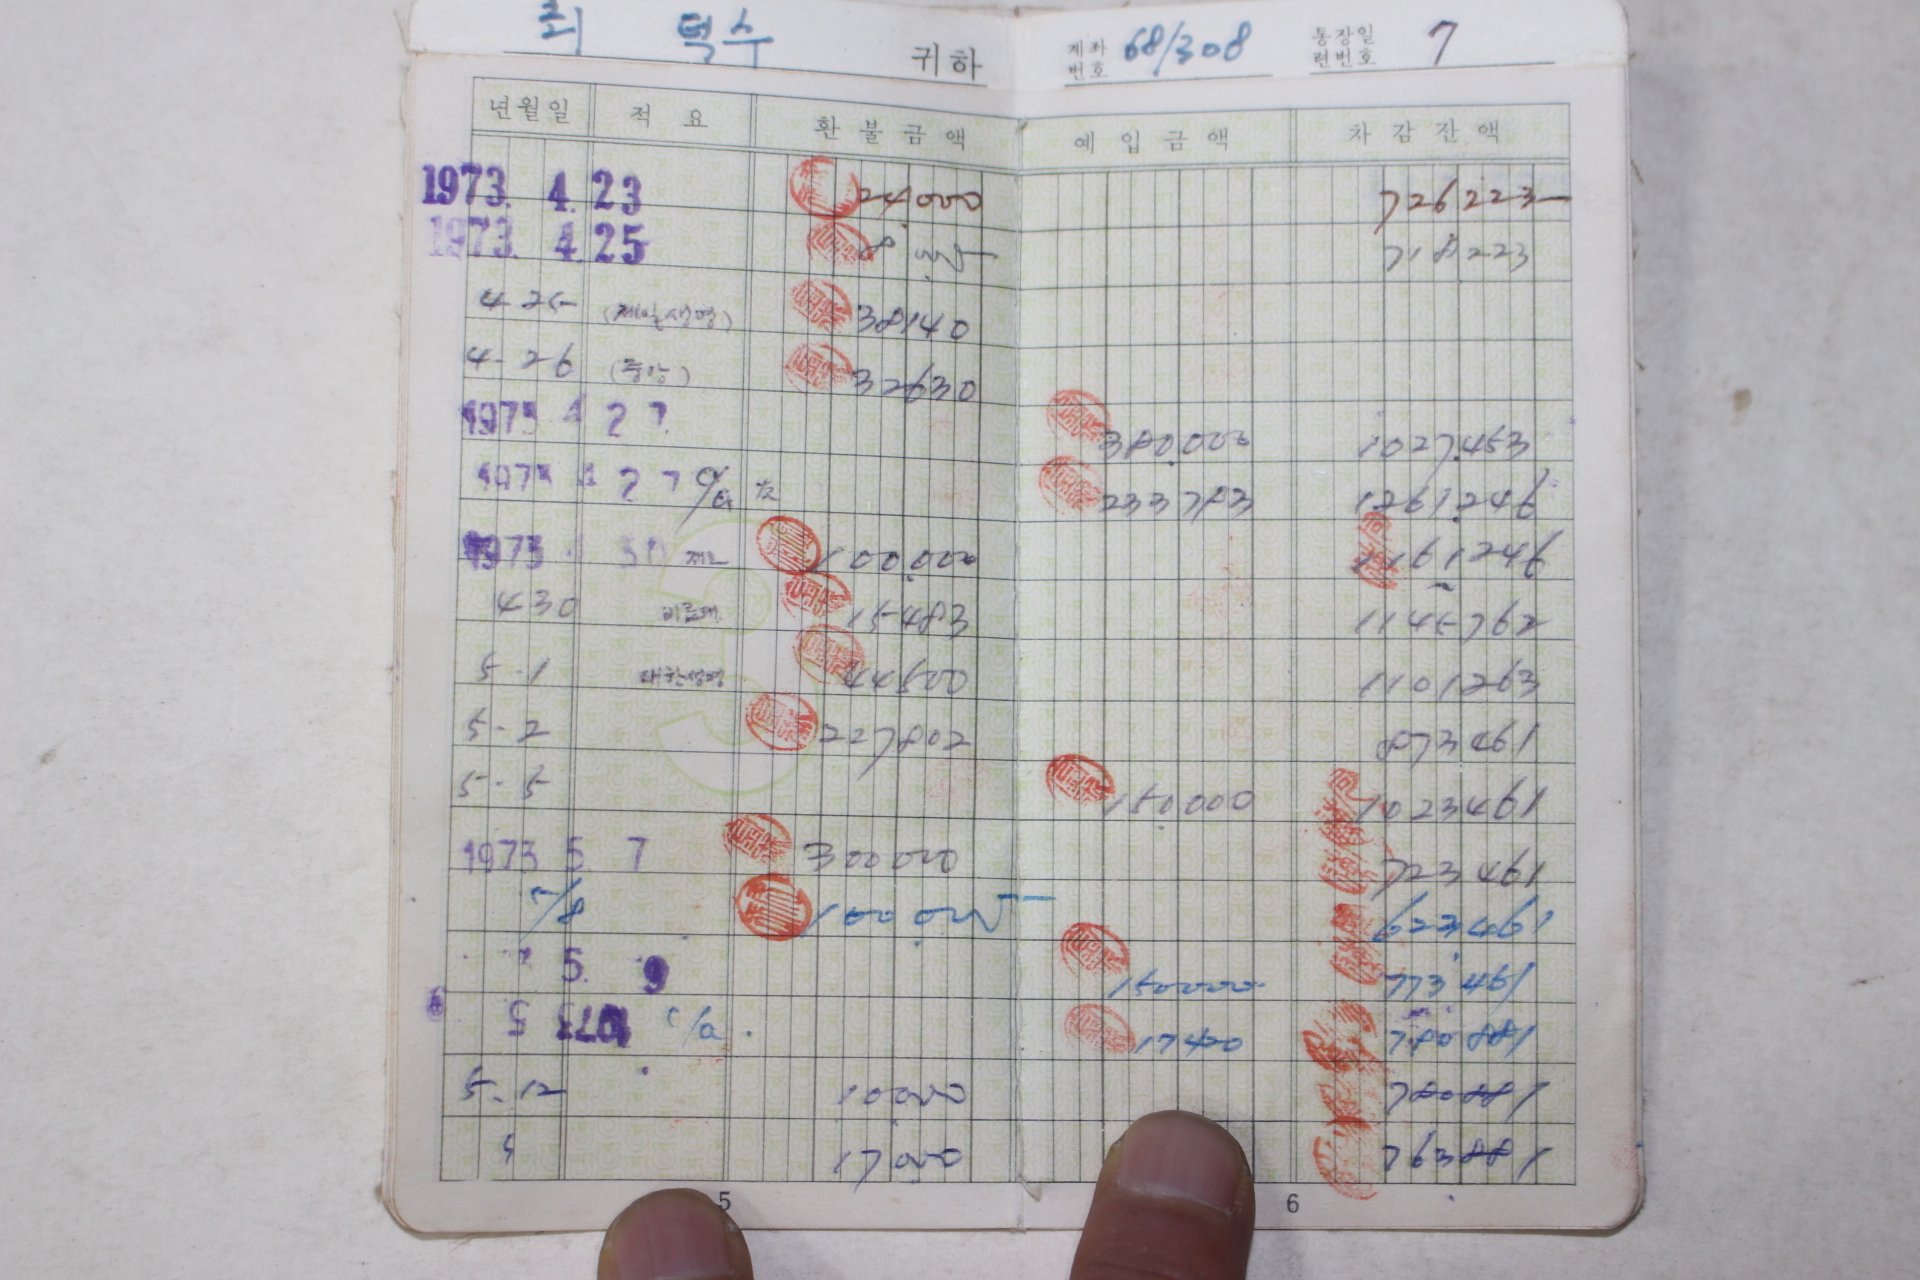 최 덕수 귀하 계좌번호 68/308 통장일련번호 7
년월일 적요 환불금액 예입금액 차감잔액
1973. 4. 23 24000 726223
1973. 4. 25 8 718223
4 25 (제일생명) 38140
4-26 (중앙) 32630
1973 4 27 380,000 1027,453
1973 4 27 233793 1261246
1973 30 100,000 1161246
4 30 15483 1145762
5-1 대한생명 44500 1101263
5-2 227802 873461
5-5 150,000 1023461
1973 5 7 300000 723461
5/8 100000 623461
5. 9 150000 773461
5 1973 c/a 17420 790881
5-12 10000 780881
5 17000 763881
5 6